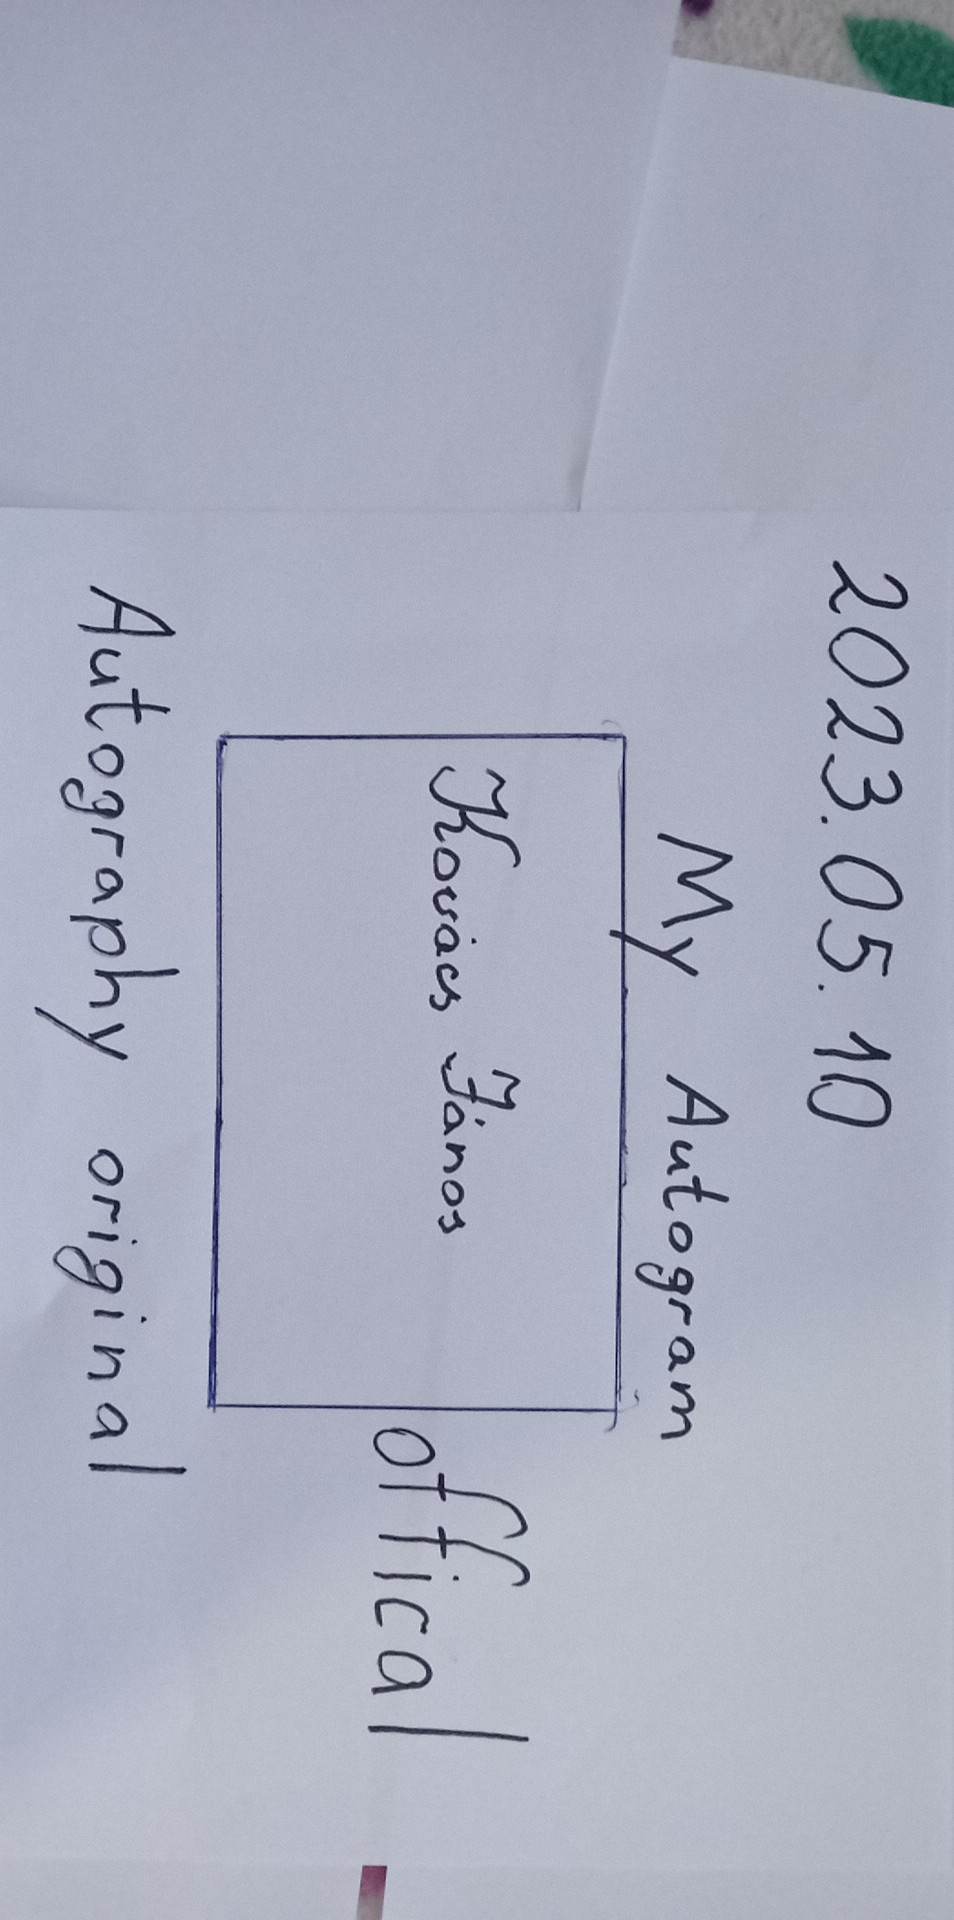 2023.05.10
My Autogram
Kovács János
offical
Autography original